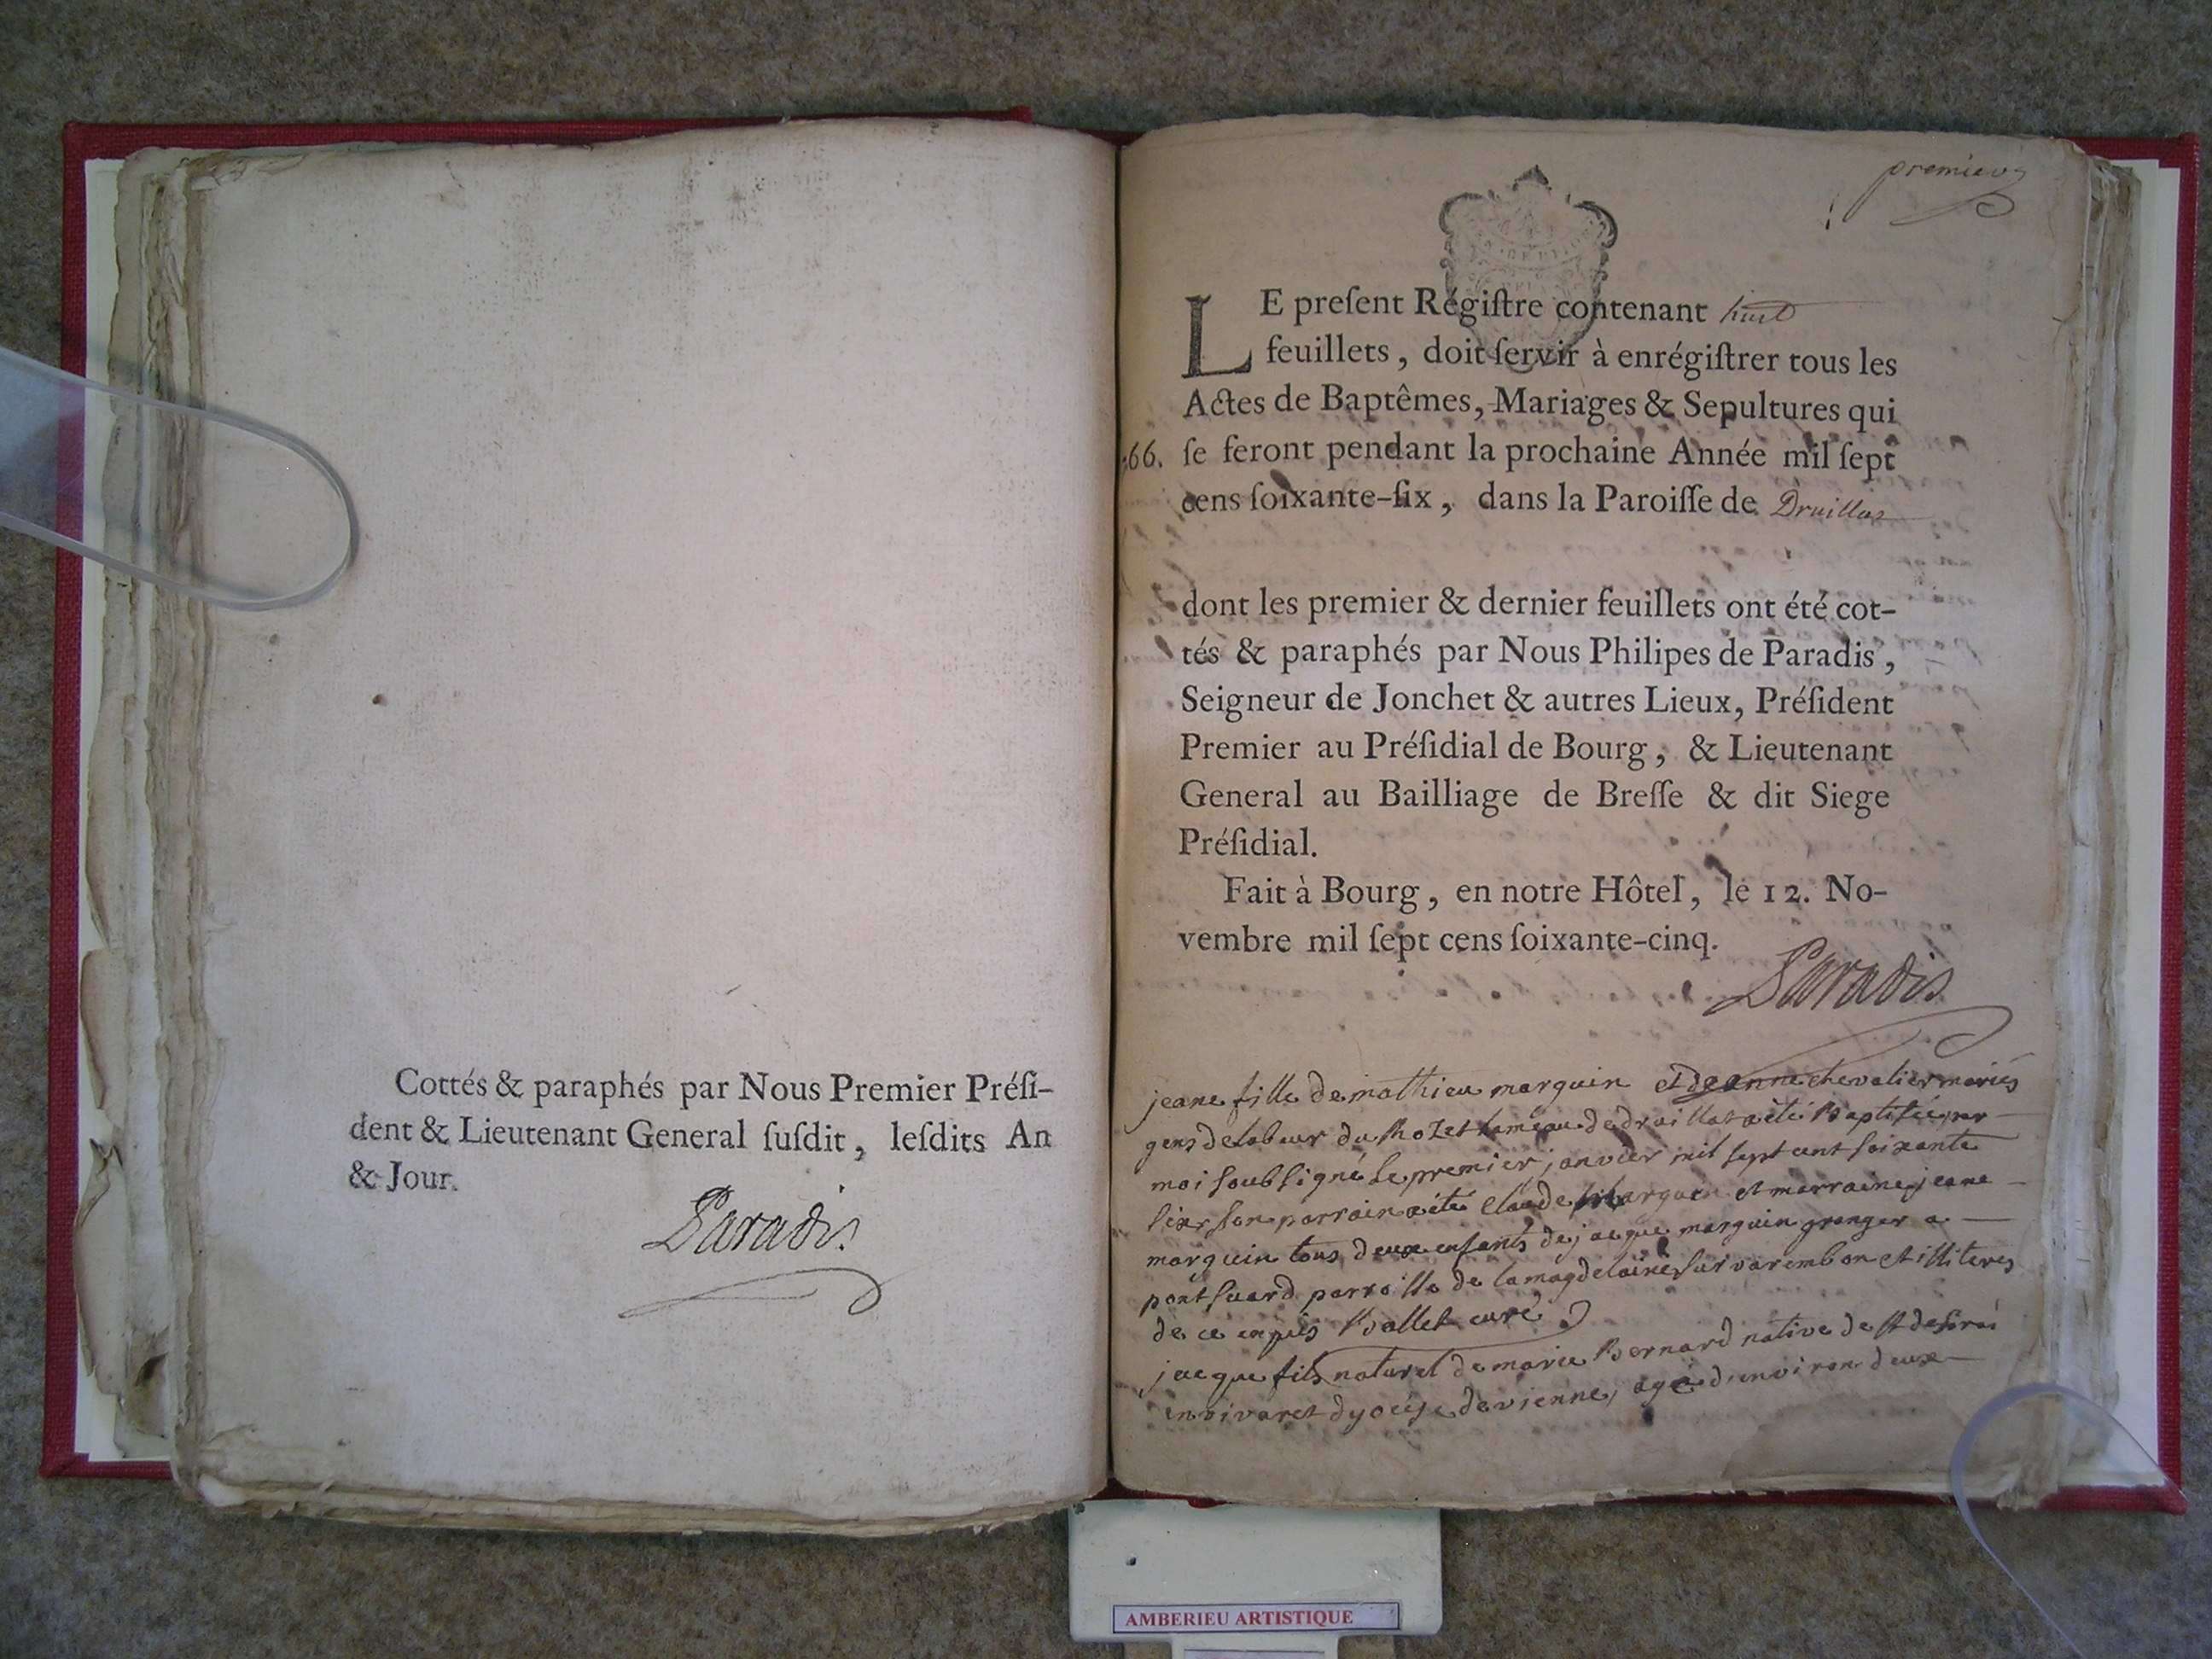 Cottés & paraphés par Nous Premier Présı-
dent & Lieutenant General ſuſdit, leſdits An
& Jour.
Paradis
premier
LE preſent Régiſtre contenant huit
feuillets, doit ſervir à enrégiſtrer tous les
Actes de Baptêmes, Mariages & Sepultures qui
66. ſe feront pendant la prochaine Année mil ſept
cens ſoixante-ſix, dans la Paroiſſe de Druillas
dont les premier & dernier feuillets ont été cot-
tés & paraphés par Nous Philipes de Paradis,
Seigneur de Jonchet & autres Lieux, Préſident
Premier au Préſidial de Bourg, & Lieutenant
General au Bailliage de Breſſe & dit Siege
Préſidial.
Fait à Bourg, en notre Hôtel, le 12. No-
vembre mil ſept cens ſoixante-cinq.
Paradis
jeane fille de mathieu marguin et de anne chevalier mariés
gens de labeur du Rozet hameau de druillat a été Baptisée par
moi soubsigné le premier janvier mil sept cent soixante
six son parrain a été claude Marguin et marraine jeane
marguin tous deux enfants de jacque marguin granger a
pont suard parroisse de la magdelaine sur varembon et illiteres
de ce enquis Vallet curé
jacque fils naturel de marie Bernard native de st desirai
en vivaret dyocese de vienne, agé d'environ deux
AMBERIEU ARTISTIQUE